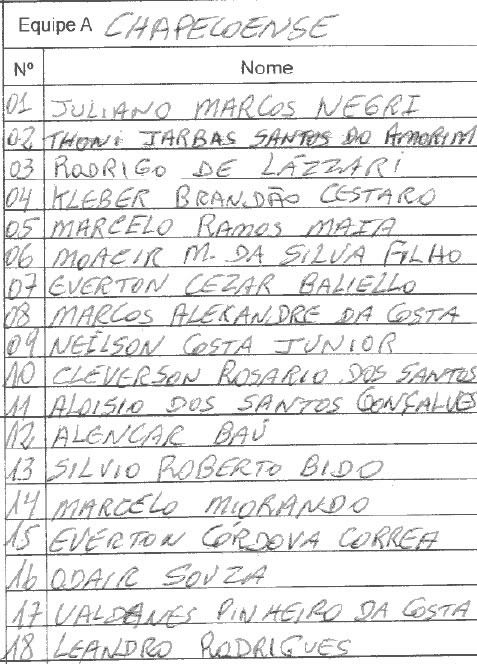 Equipe A CHAPECOENSE
Nº Nome
01 JULIANO MARCOS NEGRI
02 THONI JARBAS SANTOS DO AMORIM
03 RODRIGO DE LAZZARI
04 KLEBER BRANDÃO CESTARO
05 MARCELO RAMOS MAIA
06 MOACIR M. DA SILVA FILHO
07 EVERTON CEZAR BALIELLO
08 MARCOS ALEXANDRE DA COSTA
09 NEÍLSON COSTA JUNIOR
10 CLEVERSON ROSARIO DOS SANTOS
11 ALOISIO DOS SANTOS GONÇALVES
12 ALENCAR BAÚ
13 SILVIO ROBERTO BIDO
14 MARCELO MIORANDO
15 EVERTON CÓRDOVA CORREA
16 ODAIR SOUZA
17 VALDANES PINHEIRO DA COSTA
18 LEANDRO RODRIGUES